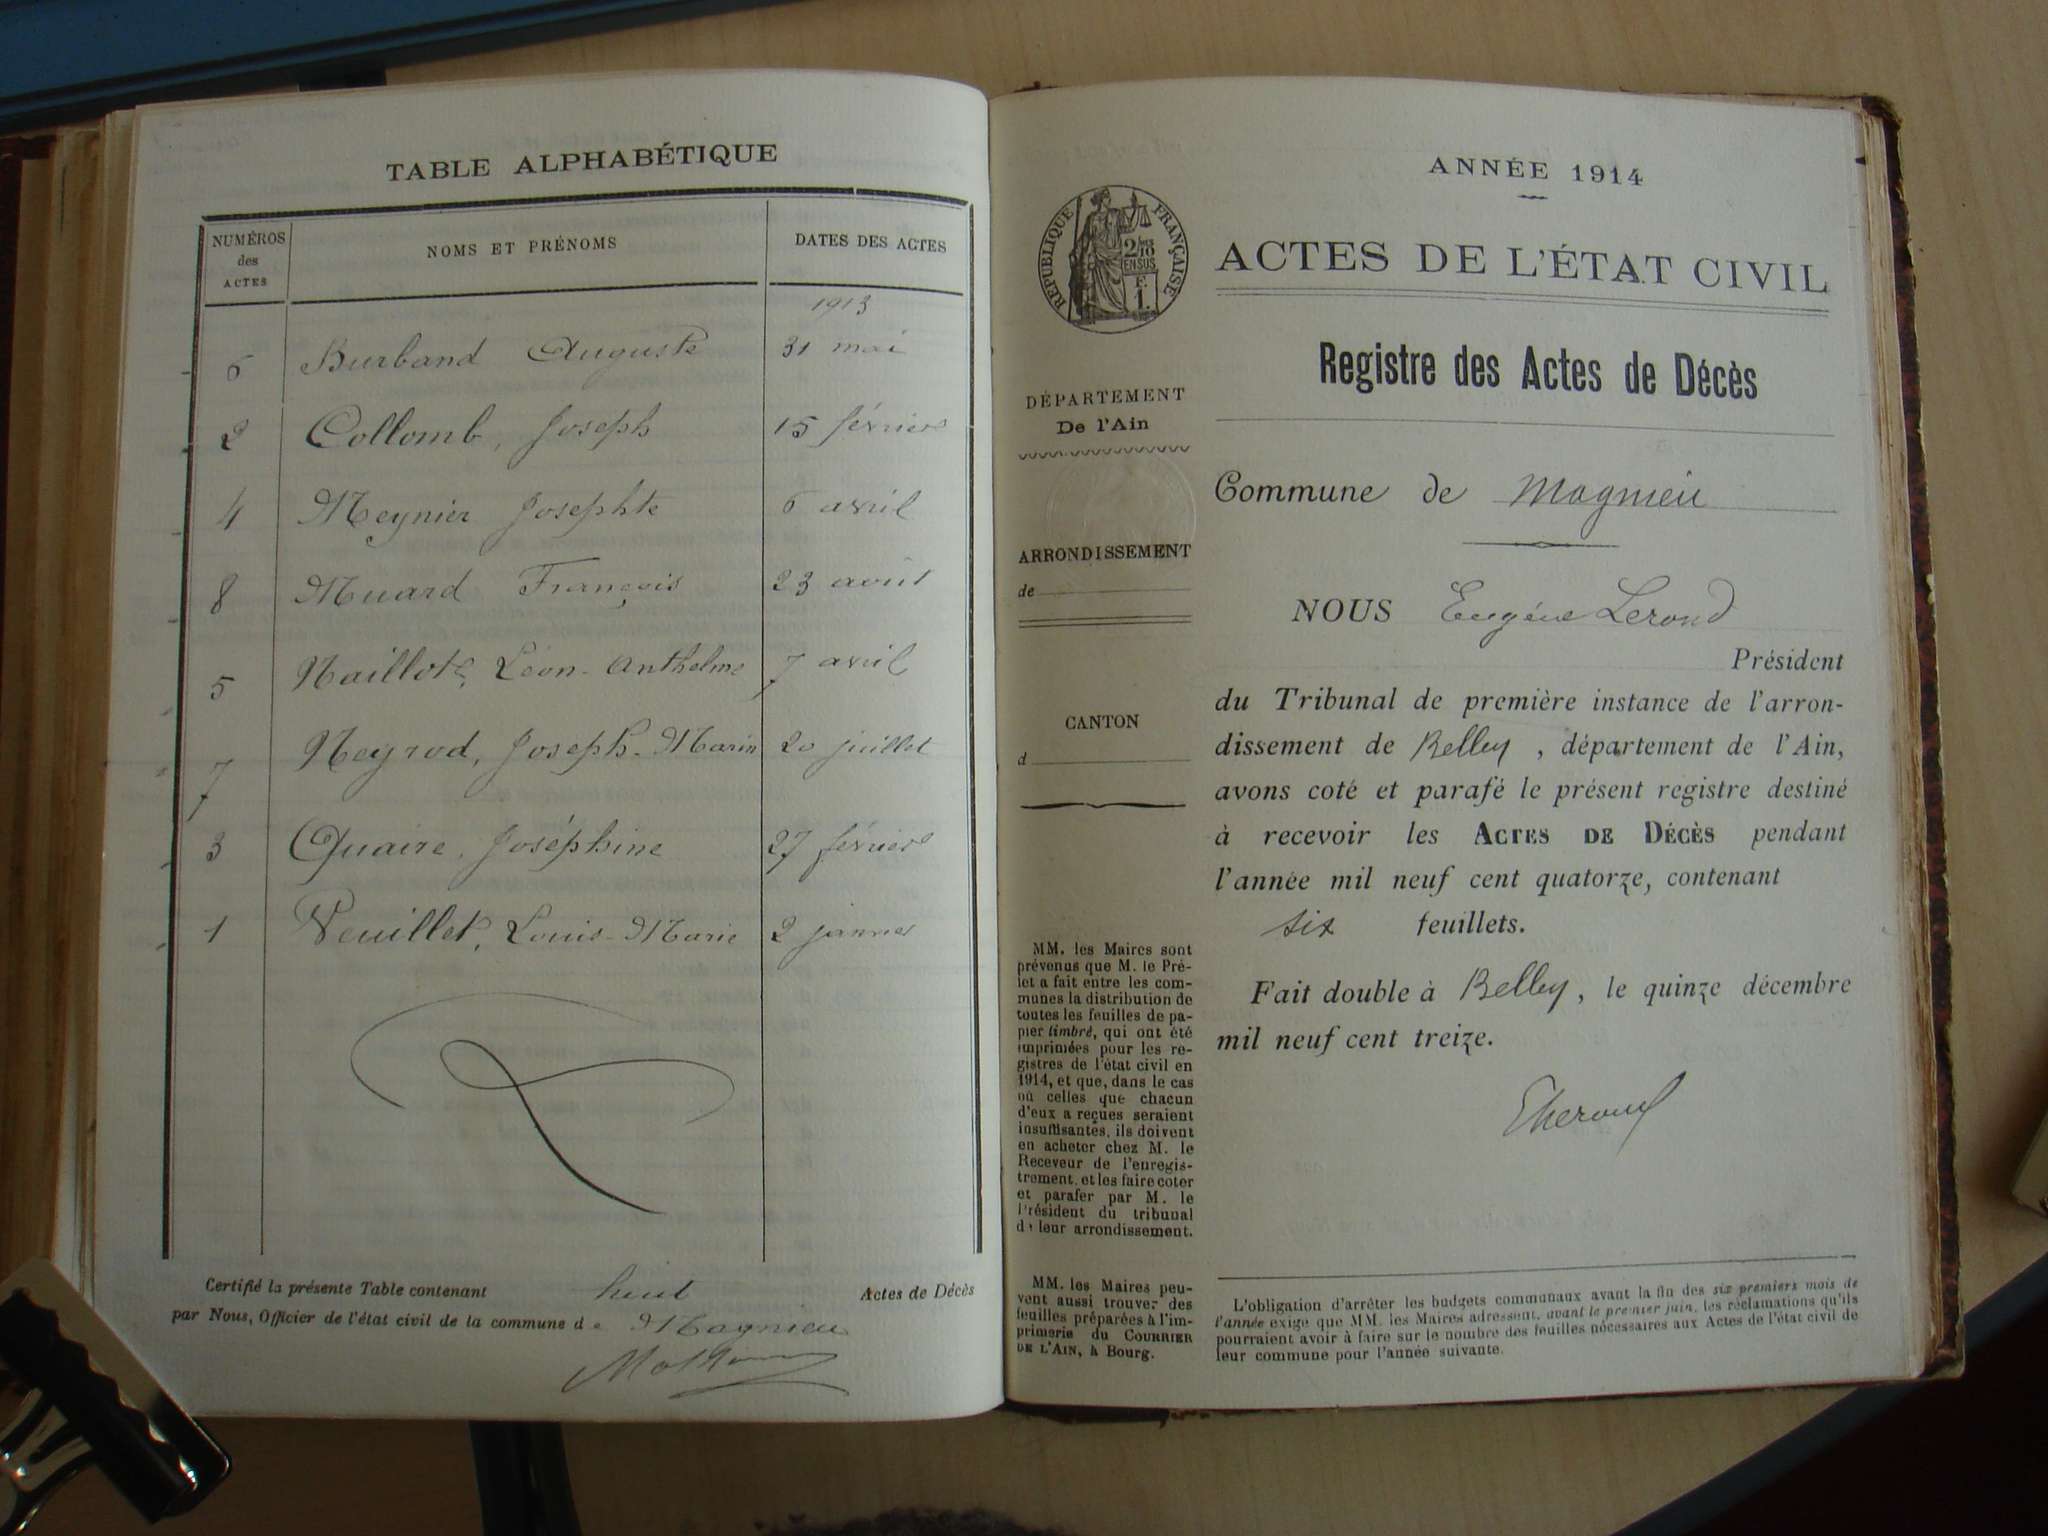 TABLE ALPHABÉTIQUE
NUMÉROS des ACTES
NOMS ET PRÉNOMS
DATES DES ACTES
1913
6 Burband Auguste 31 mai
2 Collomb, Joseph 15 février
4 Meynier Josephte 6 avril
8 Muard François 23 août
5 Naillot, Léon-Anthelme 7 avril
7 Neyrod, Joseph-Marin 20 juillet
3 Quaire, Joséphine 27 février
1 Veuillet, Louis-Marie 2 janvier
Certifié la présente Table contenant huit Actes de Décès
par Nous, Officier de l'état civil de la commune de Magnieu
RÉPUBLIQUE FRANÇAISE
2/10 EN SUS
F. 1.
DÉPARTEMENT
De l'Ain
ARRONDISSEMENT
de
CANTON
d
MM. les Maires sont
prévenus que M. le Pré-
fet a fait entre les com-
munes la distribution de
toutes les feuilles de pa-
pier timbré, qui ont été
imprimées pour les re-
gistres de l'état civil en
1914, et que, dans le cas
où celles que chacun
d'eux a reçues seraient
insuffisantes, ils doivent
en acheter chez M. le
Receveur de l'enregis-
trement, et les faire coter
et parafer par M. le
Président du tribunal
de leur arrondissement.
MM. les Maires peu-
vent aussi trouver des
feuilles préparées à l'im-
primerie du COURRIER
DE L'AIN, à Bourg.
ANNÉE 1914
ACTES DE L'ÉTAT CIVIL
Registre des Actes de Décès
Commune de Magnieu
NOUS Eugène Lerond
Président
du Tribunal de première instance de l'arron-
dissement de Belley, département de l'Ain,
avons coté et parafé le présent registre destiné
à recevoir les ACTES DE DÉCÈS pendant
l'année mil neuf cent quatorze, contenant
six feuillets.
Fait double à Belley, le quinze décembre
mil neuf cent treize.
L'obligation d'arrêter les budgets communaux avant la fin des six premiers mois de
l'année exige que MM. les Maires adressent, avant le premier juin, les réclamations qu'ils
pourraient avoir à faire sur le nombre des feuilles nécessaires aux Actes de l'état civil de
leur commune pour l'année suivante.